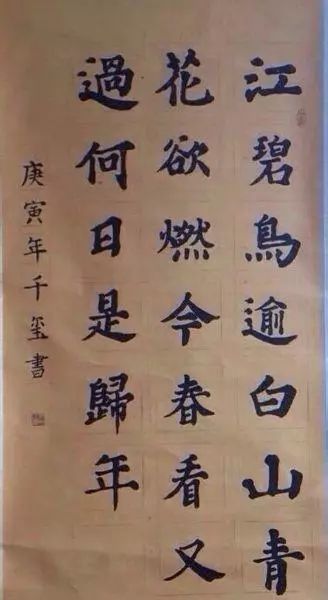 江碧鳥逾白山青
花欲燃今春看又
過何日是歸年
庚寅年千玺書